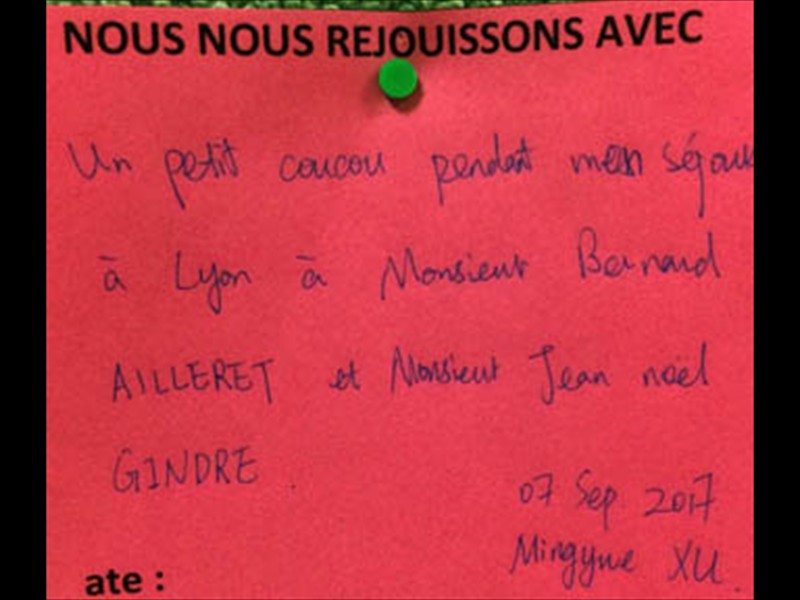 NOUS NOUS REJOUISSONS AVEC
Un petit coucou pendant mon séjour
à Lyon à Monsieur Bernard
AILLERET et Monsieur Jean noël
GINDRE.
07 Sep 2017
Mingyue XU.
ate :